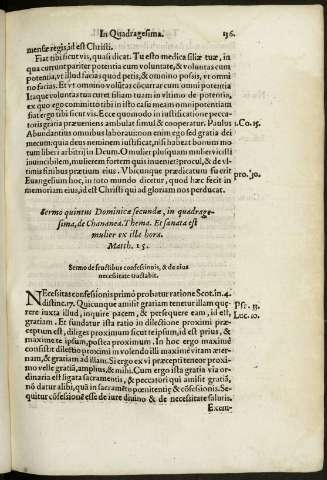 In Quadragesima. 136.
mensæ regis, id est Christi.
Fiat tibi sicut vis, quasi dicat. Tu esto medica filiæ tuæ, in
qua currunt pariter potentia cum voluntate, & voluntas cum
potentia, vt illud facias quod petis, & omnino possis, vt omni
no facias. Et vt omnino volūtas cōcurrat cum omni potentia
Itaque voluntas tua curet filiam tuam in vltimo de potentia,
ex quo ego committo tibi in isto casu meam omnipotentiam
fiat ergo tibi sicut vis. Ecce quomodo in iustificatione pecca-
toris gratia præueniens ambulat simul & cooperatur. Paulus 1. Co. 15.
Abundantius omnibus laboraui: non enim ego sed gratia dei
mecum: quia deus neminem iustificat, nisi habeat bonum mo-
tum liberi arbitrij in Deum. O mulier plusquam mulier vicisti
inuincibilem, mulierem fortem quis inueniet? procul, & de vl-
timis finibus prætium eius. Vbicunque prædicatum fuerit Pro. 30.
Euangelium hoc, in toto mundo dicetur, quod hæc fecit in
memoriam eius, id est Christi qui ad gloriam nos perducat.
Sermo quintus Dominicæ secundæ, in quadrage-
sima, de Chananea. Thema. Et sanata est
mulier ex illa hora.
Matth. 15.
Sermo de fructibus confessionis, & de eius
necessitate tractabit.
NEcessitas confessionis primo probatur ratione Scot. in. 4.
distinc. 17. Quicunque amisit gratiam tenetur illam quæ- Psi. 33.
rere iuxta illud, inquire pacem, & persequere eam, id est, Luc. 10.
gratiam. Et fundatur ista ratio in dilectione proximi præ-
ceptum est, diliges proximum sicut te ipsum, id est prius, &
maxime te ipsum, postea proximum. In hoc ergo maximè
consistit dilectio proximi in volendo illi maximè vitam æter-
nam, & gratiam ad illam. Si ergo ex vi præcepti teneor proxi-
mo velle gratiā, amplius, & mihi. Cum ergo ista gratia via or-
dinaria est ligata sacramentis, & peccatori qui amisit gratiā,
nō datur alibi, quā in sacramēto pœnitentię & cōfessionis. Se-
quitur cōfessionē esse de iure diuino & de necessitate salutis.
Exem-